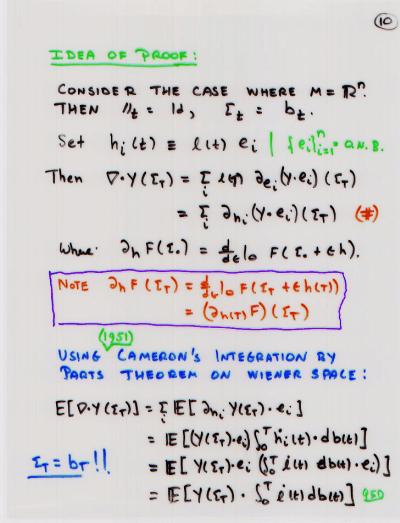 10
IDEA OF PROOF:
CONSIDER THE CASE WHERE M = ℝⁿ.
THEN //ₜ = Id, Σₜ = bₜ.
Set hᵢ(t) ≡ l(t) eᵢ | {eᵢ}ⁿᵢ₌₁ = O.N.B.
Then ∇·Y(Σ_T) = Σᵢ l(T) ∂_{eᵢ}(Y·eᵢ)(Σ_T)
= Σᵢ ∂_{hᵢ}(Y·eᵢ)(Σ_T) (#)
Where ∂ₕF(Σ.) = d/dε|₀ F(Σ. + εh).
NOTE ∂ₕF(Σ_T) = d/dε|₀ F(Σ_T + εh(T))
= (∂_{h(T)}F)(Σ_T)
(1951)
USING CAMERON'S INTEGRATION BY
PARTS THEOREM ON WIENER SPACE:
E[∇·Y(Σ_T)] = Σᵢ E[∂_{hᵢ}Y(Σ_T)·eᵢ]
= E[(Y(Σ_T)·eᵢ)∫₀ᵀ ḣᵢ(t)·db(t)]
Σ_T = b_T!! = E[Y(Σ_T)·eᵢ (∫₀ᵀ l̇(t) db(t)·eᵢ)]
= E[Y(Σ_T)·∫₀ᵀ l̇(t) db(t)] QED